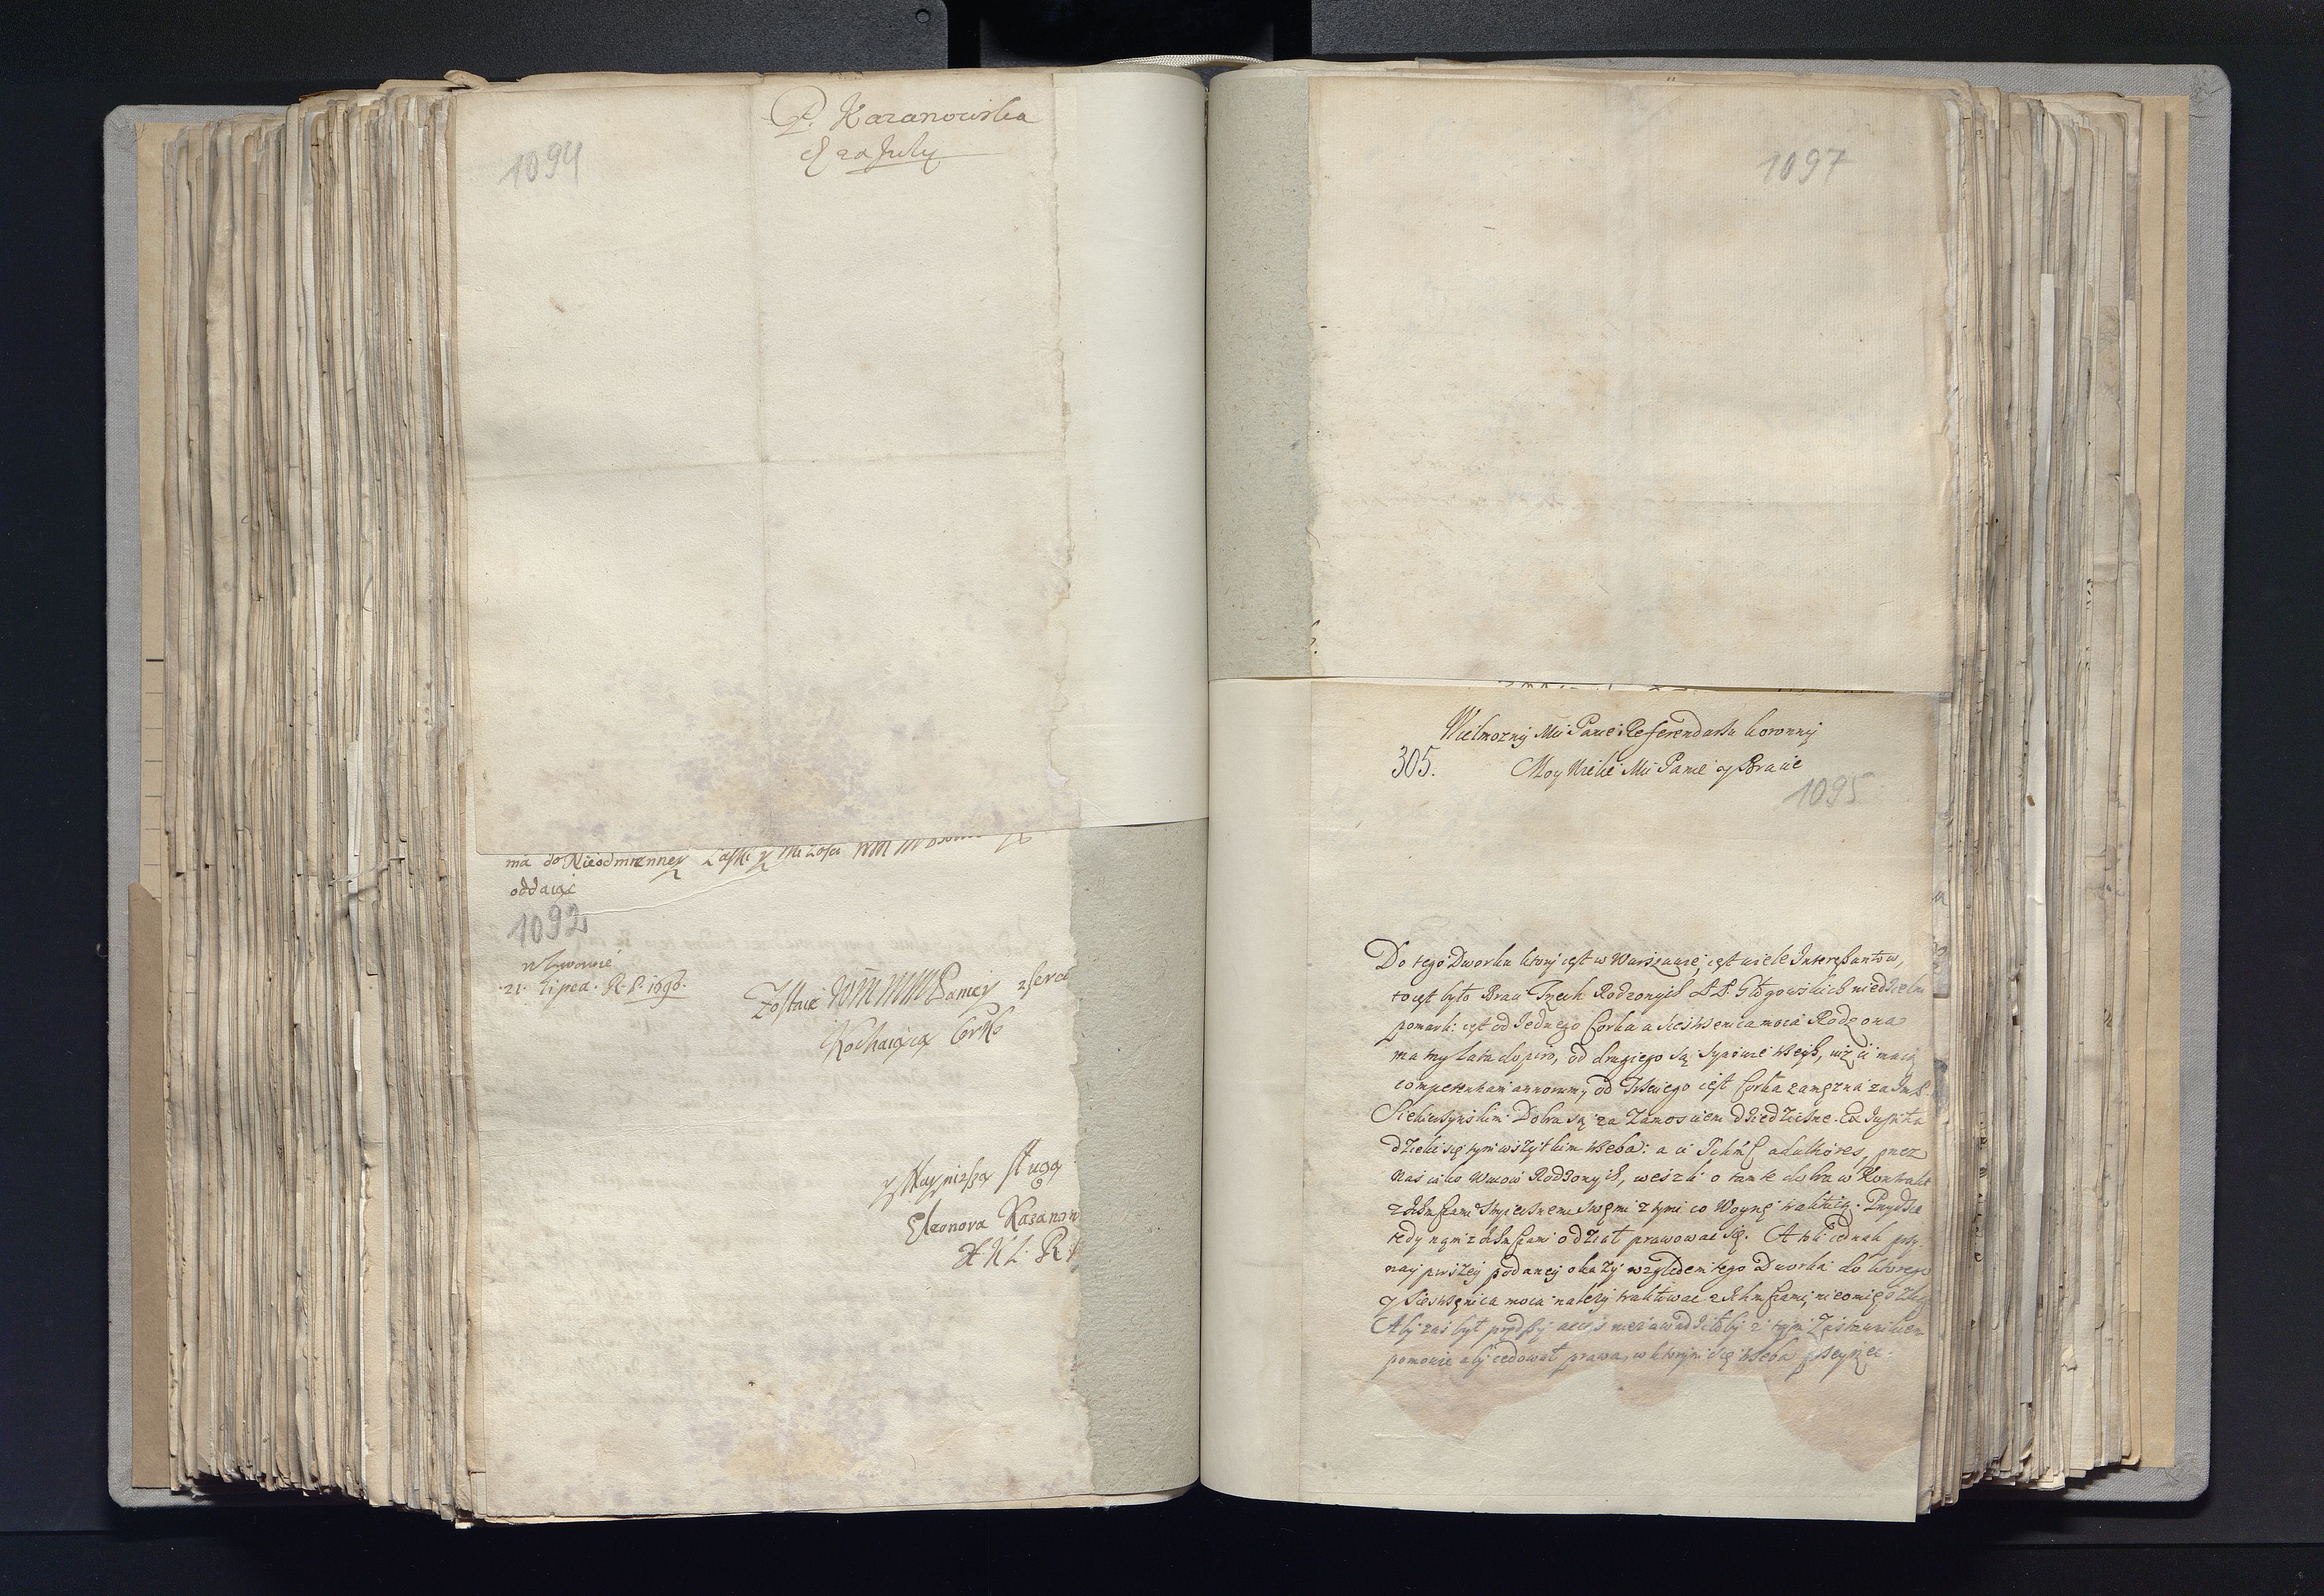 P. Kazanowska
d 20 July
1094
ma do Nieodmienney Łaski y Miłosci WM
oddaiąc
1092
w Lwowie
21. Lipca. R. P. 1696.
Zostaie WM MM Paniey
Kochaiącą Corką
y Naynizszą sługą
Eleonora Kazanow
1097
Wielmozny Mci Panie Referendarzu Koronny
305.
Moy Wielce Mci Panie y Bracie
1095
Do tego Dworku ktory iest w Warszawie, iest wiele Interessantow,
to iest było Braci Trzech Rodzonych PP. Głogowskich niedzielni
pomarli: iest od Jednego Corka a Siestrzenica moia Rodzona
ma trzy lata dopiero, od drugiego są Synowie trzeyb, iuz ci maią
competentiam annorum, od Trzeciego iest Corka zamęzna za
Dobra są za Zamosciem dziedziczne. Ex Iusta
dzielić się tym wszytkim trzeba: a ci adultiores, przez
nas iako Wuiow Rodzonych, weszli o tamte dobra w Kontrakt
z stryiecznemi swemi z tymi co Woynę traktuią. Przydzie
tedy nam z o dział prawować się. A toli iednak przy
naypierszey podaney okazyi względem tego Dworku do ktorego
y Siestrzenica moia nalezy traktować z
Aby zaś był prędszy
pomocie aby cedował prawa, w ktorym się trzeba